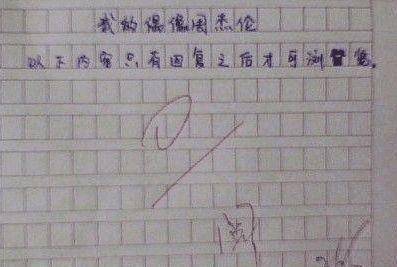 我的偶像周杰伦
以下内容只有回复之后才可浏览。
0
阅